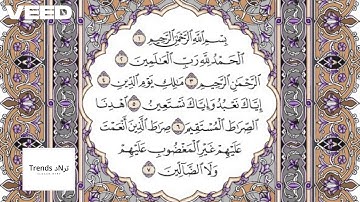 VEED
بِسْمِ اللَّهِ الرَّحْمَٰنِ الرَّحِيمِ ١
الْحَمْدُ لِلَّهِ رَبِّ الْعَالَمِينَ ٢
الرَّحْمَٰنِ الرَّحِيمِ ٣ مَالِكِ يَوْمِ الدِّينِ ٤
إِيَّاكَ نَعْبُدُ وَإِيَّاكَ نَسْتَعِينُ ٥ اهْدِنَا
الصِّرَاطَ الْمُسْتَقِيمَ ٦ صِرَاطَ الَّذِينَ أَنْعَمْتَ
عَلَيْهِمْ غَيْرِ الْمَغْضُوبِ عَلَيْهِمْ
وَلَا الضَّالِّينَ ٧
Trends ترند